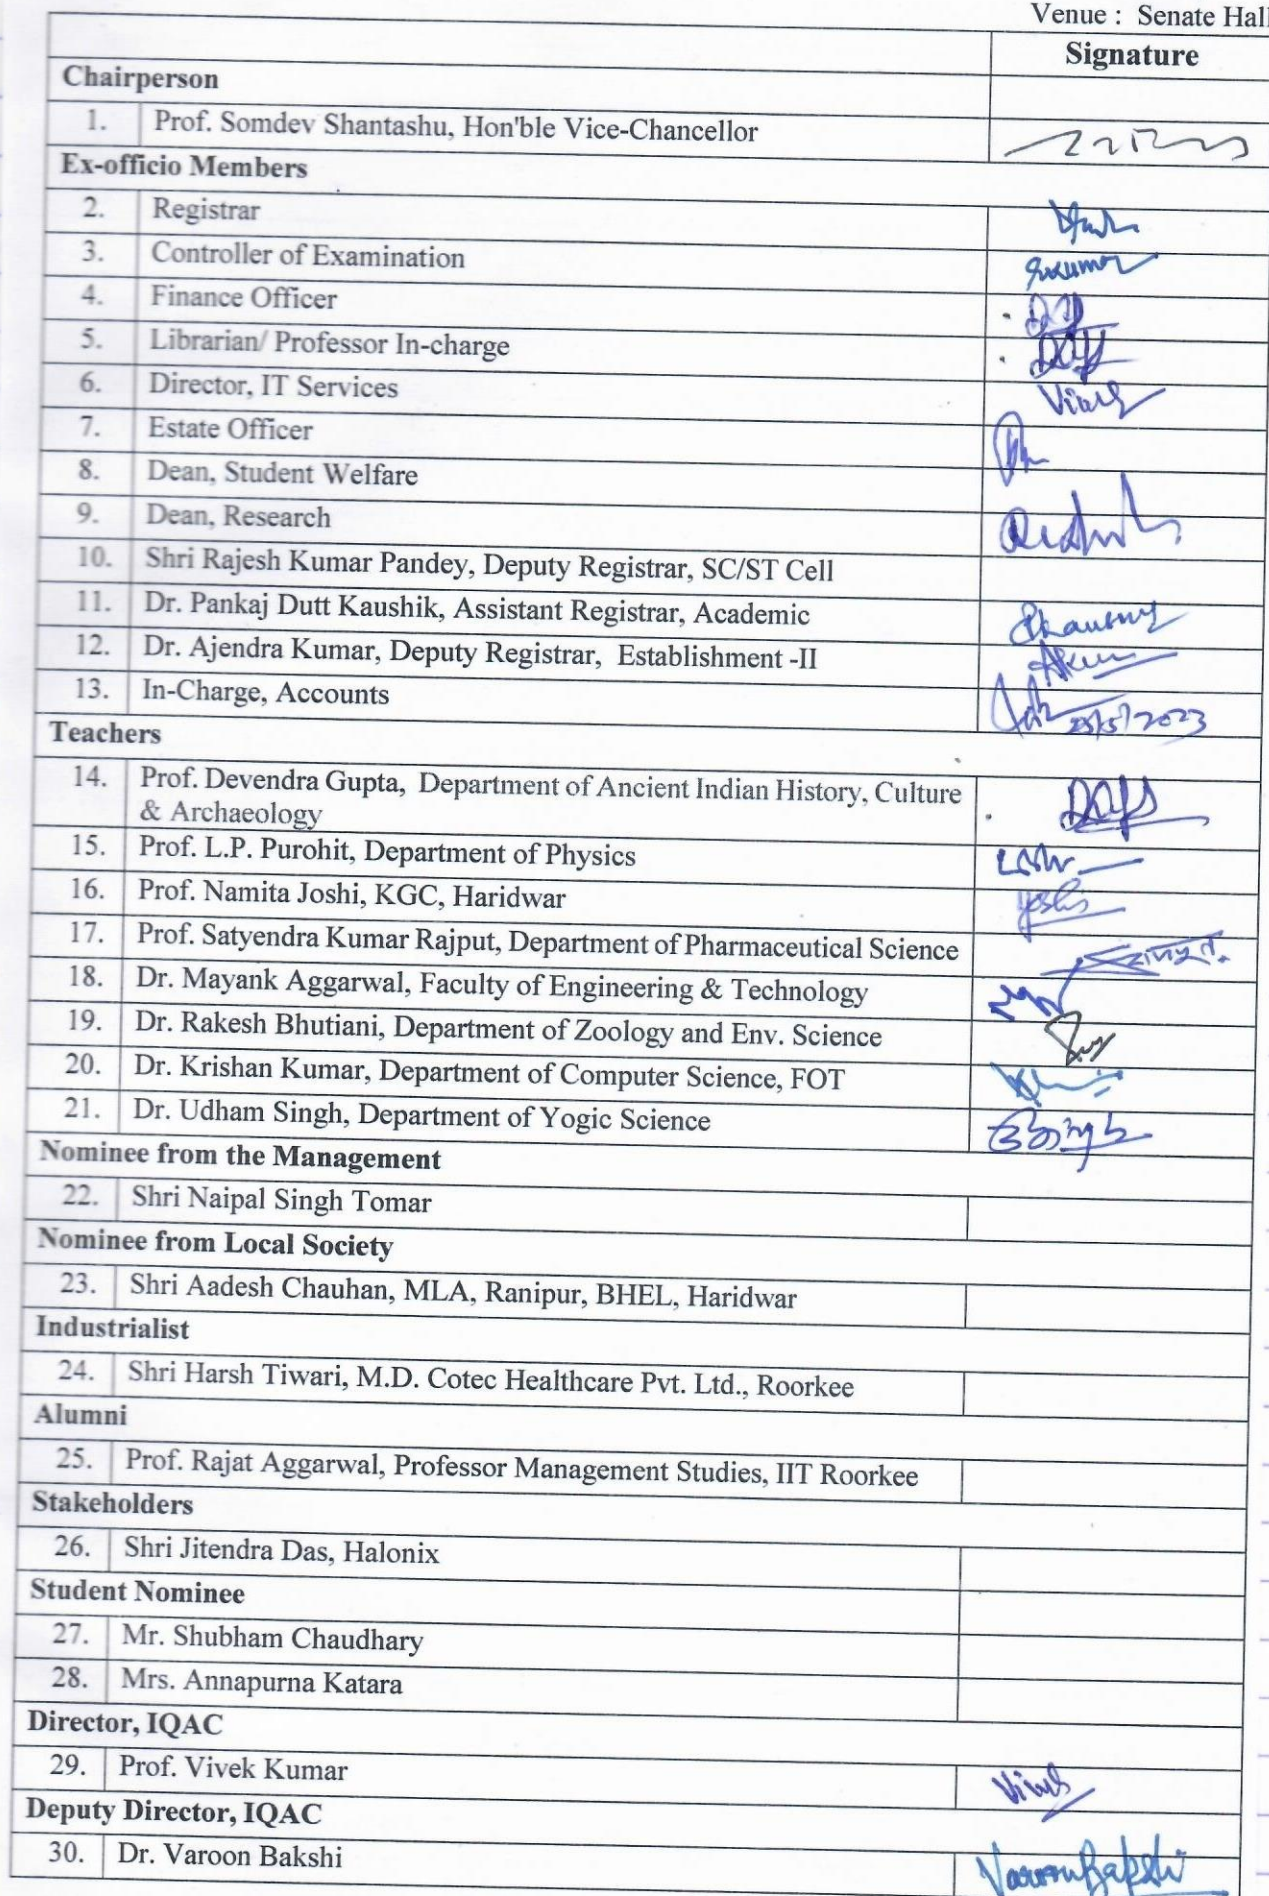 Venue : Senate Hall
Signature
Chairperson
1. Prof. Somdev Shantashu, Hon'ble Vice-Chancellor
Ex-officio Members
2. Registrar
3. Controller of Examination
4. Finance Officer
5. Librarian/ Professor In-charge
6. Director, IT Services
7. Estate Officer
8. Dean, Student Welfare
9. Dean, Research
10. Shri Rajesh Kumar Pandey, Deputy Registrar, SC/ST Cell
11. Dr. Pankaj Dutt Kaushik, Assistant Registrar, Academic
12. Dr. Ajendra Kumar, Deputy Registrar, Establishment -II
13. In-Charge, Accounts 25/5/2023
Teachers
14. Prof. Devendra Gupta, Department of Ancient Indian History, Culture
& Archaeology
15. Prof. L.P. Purohit, Department of Physics
16. Prof. Namita Joshi, KGC, Haridwar
17. Prof. Satyendra Kumar Rajput, Department of Pharmaceutical Science
18. Dr. Mayank Aggarwal, Faculty of Engineering & Technology
19. Dr. Rakesh Bhutiani, Department of Zoology and Env. Science
20. Dr. Krishan Kumar, Department of Computer Science, FOT
21. Dr. Udham Singh, Department of Yogic Science
Nominee from the Management
22. Shri Naipal Singh Tomar
Nominee from Local Society
23. Shri Aadesh Chauhan, MLA, Ranipur, BHEL, Haridwar
Industrialist
24. Shri Harsh Tiwari, M.D. Cotec Healthcare Pvt. Ltd., Roorkee
Alumni
25. Prof. Rajat Aggarwal, Professor Management Studies, IIT Roorkee
Stakeholders
26. Shri Jitendra Das, Halonix
Student Nominee
27. Mr. Shubham Chaudhary
28. Mrs. Annapurna Katara
Director, IQAC
29. Prof. Vivek Kumar
Deputy Director, IQAC
30. Dr. Varoon Bakshi Varoon Bakshi